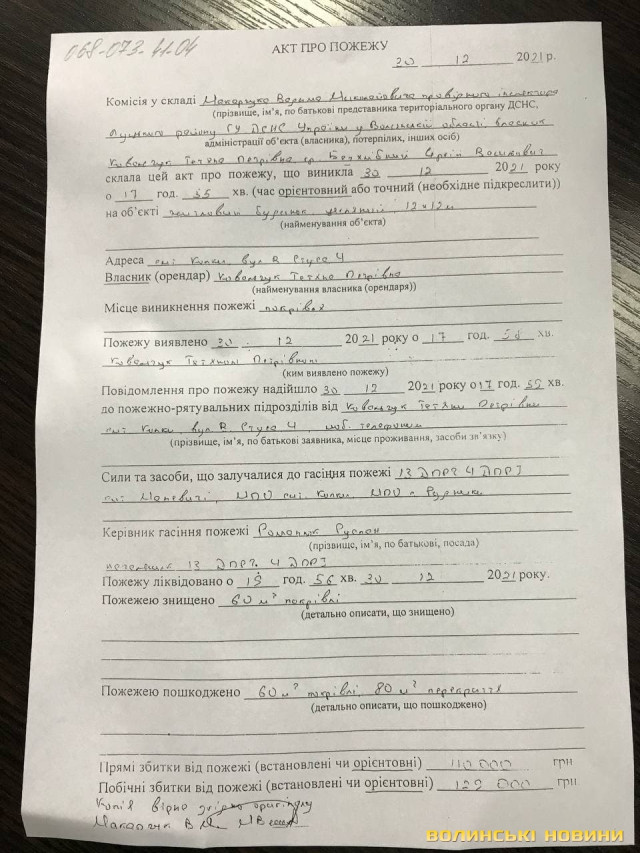 068-073-41-04
АКТ ПРО ПОЖЕЖУ
30 12 2021 р.
Комісія у складі Макарчука Вадима Миколайовича провідного інспектора
(прізвище, ім'я, по батькові представника територіального органу ДСНС,
Луцького району ГУ ДСНС України у Волинській області, власник
адміністрації об'єкта (власника), потерпілих, інших осіб)
Ковальчук Тетяна Петрівна
склала цей акт про пожежу, що виникла 30 12 2021 року
о 17 год. 55 хв. (час орієнтовний або точний (необхідне підкреслити))
на об'єкті житловий будинок 12х12м
(найменування об'єкта)
Адреса смт Колки, вул В Стуса 4
Власник (орендар) Ковальчук Тетяна Петрівна
(найменування власника (орендаря))
Місце виникнення пожежі покрівля
Пожежу виявлено 30 12 2021 року о 17 год. 58 хв.
Ковальчук Тетяною Петрівною
(ким виявлено пожежу)
Повідомлення про пожежу надійшло 30 12 2021 року о 17 год. 59 хв.
до пожежно-рятувальних підрозділів від Ковальчук Тетяни Петрівни
смт Колки, вул В Стуса 4, моб. телефоном
(прізвище, ім'я, по батькові заявника, місце проживання, засоби зв'язку)
Сили та засоби, що залучалися до гасіння пожежі 13 ДПРЧ 4 ДПРЗ
смт Маневичі, МПО смт. Колки, МПО с Рудники
Керівник гасіння пожежі Романюк Руслан
(прізвище, ім'я, по батькові, посада)
начальник 13 ДПРЧ 4 ДПРЗ
Пожежу ліквідовано о 19 год. 56 хв. 30 12 2021 року.
Пожежею знищено 60 м² покрівлі
(детально описати, що знищено)
Пожежею пошкоджено 60 м² покрівлі, 80 м² перекриття
(детально описати, що пошкоджено)
Прямі збитки від пожежі (встановлені чи орієнтовні) 110 000 грн
Побічні збитки від пожежі (встановлені чи орієнтовні) 129 000 грн
Копія вірна згідно оригіналу
Макарчук В М
ВОЛИНСЬКІ НОВИНИ